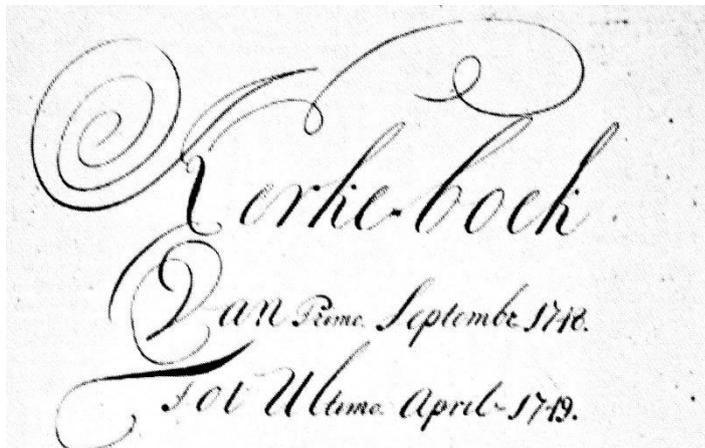 Kerke-boek
Van Primo. Septembr. 1748.
Tot Ultimo. April 1749.